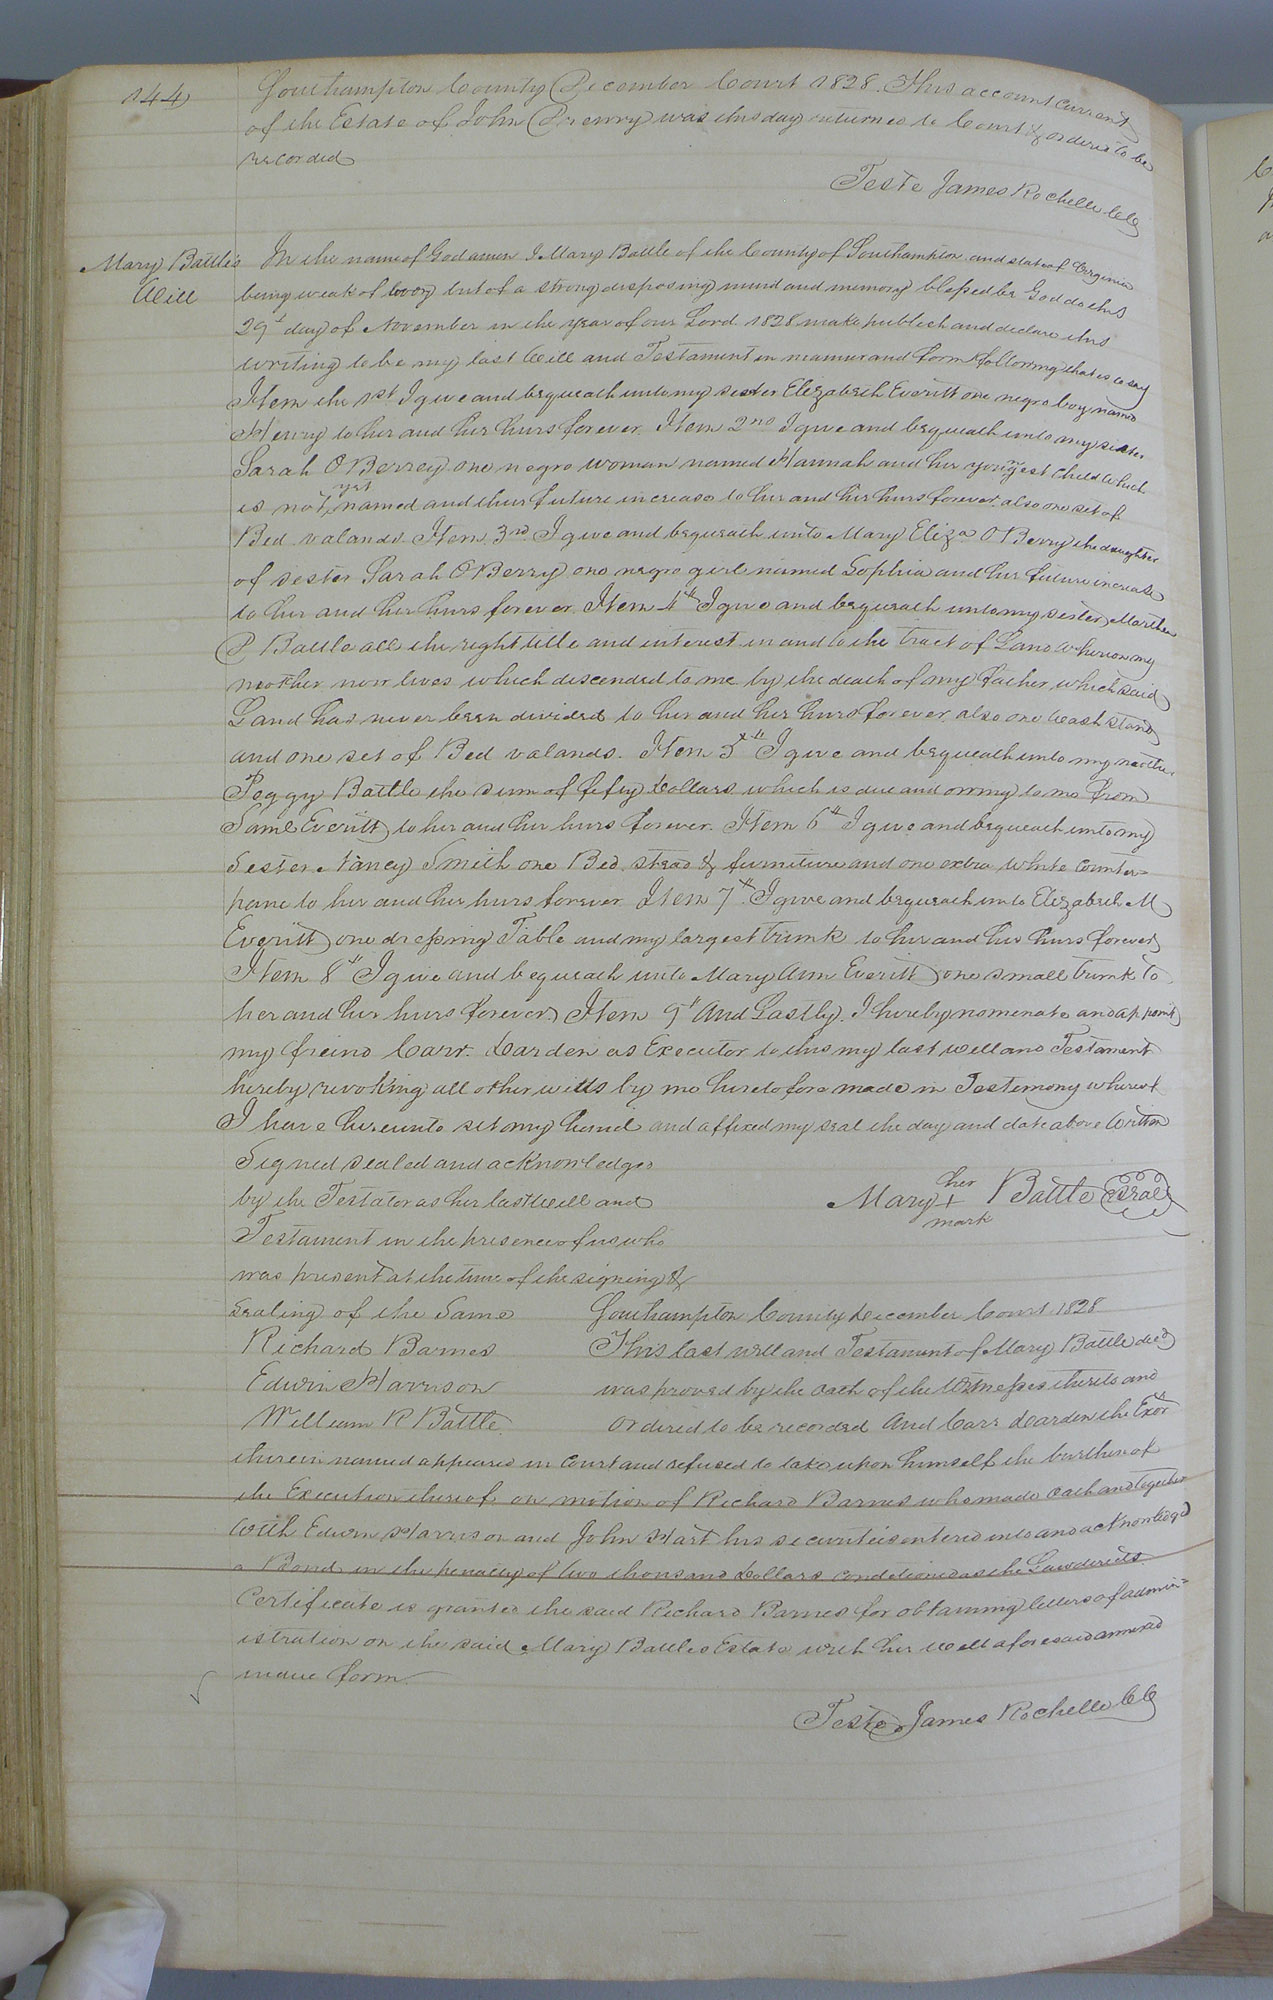 144
Southampton County December Court 1828. This account current
of the Estate of John Drewry was this day returned to Court & ordered to be
recorded
Teste James Rochelle CC
Mary Battle's
Will
In the name of God amen I Mary Battle of the County of Southampton and state of Virginia
being weak of body but of a strong disposing mind and memory blessed be God do this
29th day of November in the year of our Lord 1828 make publish and declare this
writing to be my last Will and Testament in mannur and form following that is to say
Item the 1st I give and bequeath unto my sister Elizabeth Everitt one negro boy named
Henry to her and her hurs forever. Item 2nd I give and bequeath unto my sister
Sarah O Berrey one negro woman named Hannah and her youngest child which
is not yet named and thur future increase to her and her hurs forever, also one set of
Bed valands. Item 3rd I give and bequeath unto Mary Eliza O Berry the daughter
of sister Sarah O Berry one negro girl named Sophia and her future increase
to her and her hurs forever. Item 4th I give and bequeath unto my sister Marthea
P Battle all the right title and interest in and to the tract of Land whereon my
mother now lives which descended to me by the death of my father which said
Land has never been divided to her and her hurs forever also one wash stand
and one set of Bed valands. Item 5th I give and bequeath unto my mother
Peggy Battle the sum of fifty dollars which is due and owing to me from
Saml Everitt to her and her hurs forever. Item 6th I give and bequeath unto my
sester Nancy Smith one Bed, stead & furniture and one extra white counter-
pane to her and her hurs forever Item 7th I give and bequeath unto Elizabeth M
Everitt one dressing Table and my largest trunk to her and her hurs forever
Item 8th I give and bequeath unto Mary Ann Everitt one small trunk to
her and her hurs forever) Item 9th And Lastly. I hereby nomenate and appoint
my freind Carr. Darden as Executor to this my last will and Testament
hereby revoking all other wills by me heretofore made in Testimony whereof
I have hereunto set my hand and affixed my seal the day and date above written
Signed sealed and acknowledged
by the Testator as her last Will and
Testament in the presence of us who
was present at the time of the signing &
sealing of the same
her
Mary + Battle Seal
mark
Richard Barnes
Edwin Harrison
William R Battle
Southampton County December Court 1828
This last will and Testament of Mary Battle decd
was proved by the oath of the Witnesses thereto and
ordered to be recorded And Carr Darden the Exor
therein named appeared in Court and refused to take upon himself the burthen of
the Execution thereof on motion of Richard Barnes who made oath and together
with Edwin Harrison and John Hart his securities entered into and acknowledged
a Bond in the penalty of two thousand dollars conditioned as the Law directs
Certificate is granted the said Richard Barnes for obtaining letters of admin=
istration on the said Mary Battles Estate with her Will aforesaid annexed
in due form.
Teste James Rochelle CC